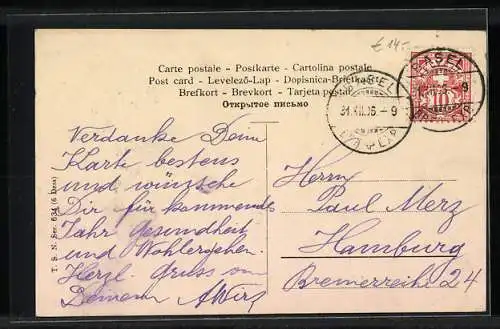 € 14.-
Carte postale - Postkarte - Cartolina postale
Post card - Levelező-Lap - Dopisnica-Briefkaart
Brefkort - Brevkort - Tarjeta postal
Открытое письмо
BASEL
31.XII.05.- 9
BASEL
9
10
T. S. N. Ser. 634 (6 Dess)
Verdanke Deine
Karte bestens
und wünsche
Dir für kommendes
Jahr Gesundheit
und Wohlergehen.
Herzl. Gruss von
Deinem
Herrn
Paul Merz
Hamburg
Bremerreihe 24